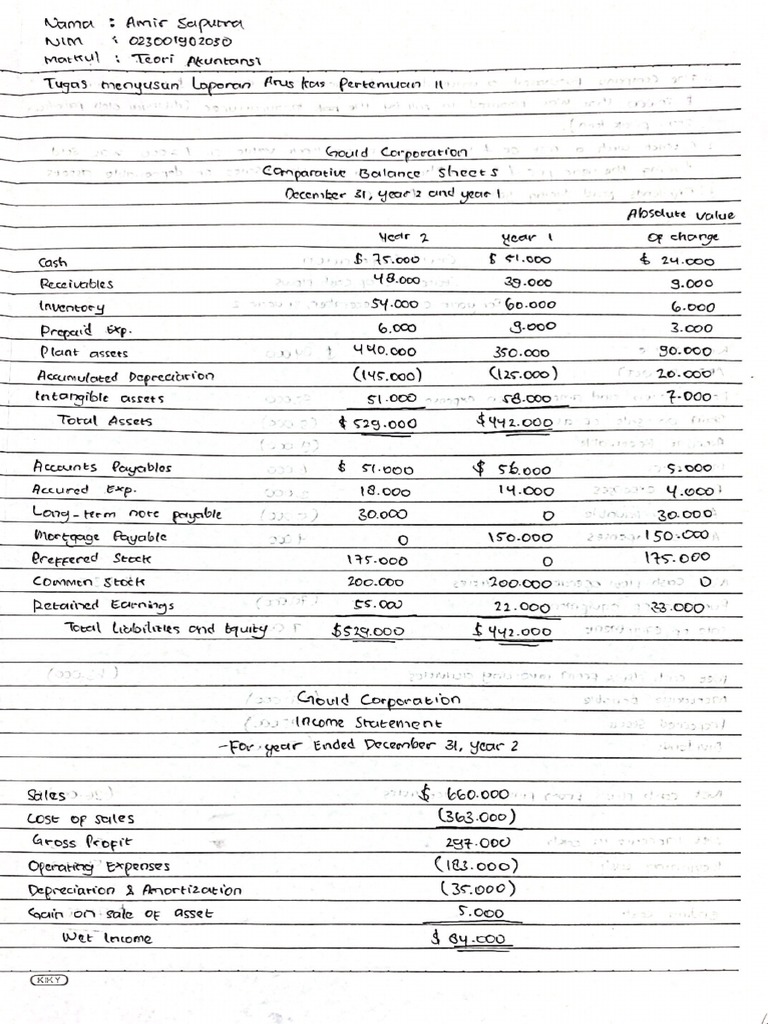 Nama : Amir Saputra
NIM : 023001902030
Matkul : Teori Akuntansi
Tugas menyusun Laporan Arus kas Pertemuan 11
Gould Corporation
Comparative Balance Sheets
December 31, year 2 and year 1
Absolute Value
Year 2 Year 1 Of change
Cash $ 75.000 $ 51.000 $ 24.000
Receivables 48.000 39.000 9.000
Inventory 54.000 60.000 6.000
Prepaid Exp. 6.000 9.000 3.000
Plant assets 440.000 350.000 90.000
Accumulated Depreciation (145.000) (125.000) 20.000
Intangible assets 51.000 58.000 7.000
Total Assets $ 529.000 $ 442.000
Accounts Payables $ 51.000 $ 56.000 5.000
Accured Exp. 18.000 14.000 4.000
Long-term note payable 30.000 0 30.000
Mortgage Payable 0 150.000 150.000
Preffered Stock 175.000 0 175.000
Common Stock 200.000 200.000 0
Retained Earnings 55.000 22.000 33.000
Total Liabilities and Equity $529.000 $ 442.000
Gould Corporation
Income Statement
-For year Ended December 31, year 2
Sales $ 660.000
Cost of sales (363.000)
Gross Profit 297.000
Operating Expenses (183.000)
Depreciation & Amortization (35.000)
Gain on sale of asset 5.000
Net Income $ 84.000
KIKY